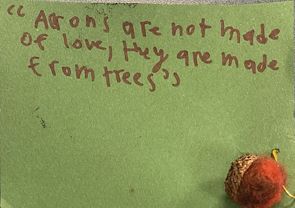 "Acrons are not made
of love, they are made
from trees"